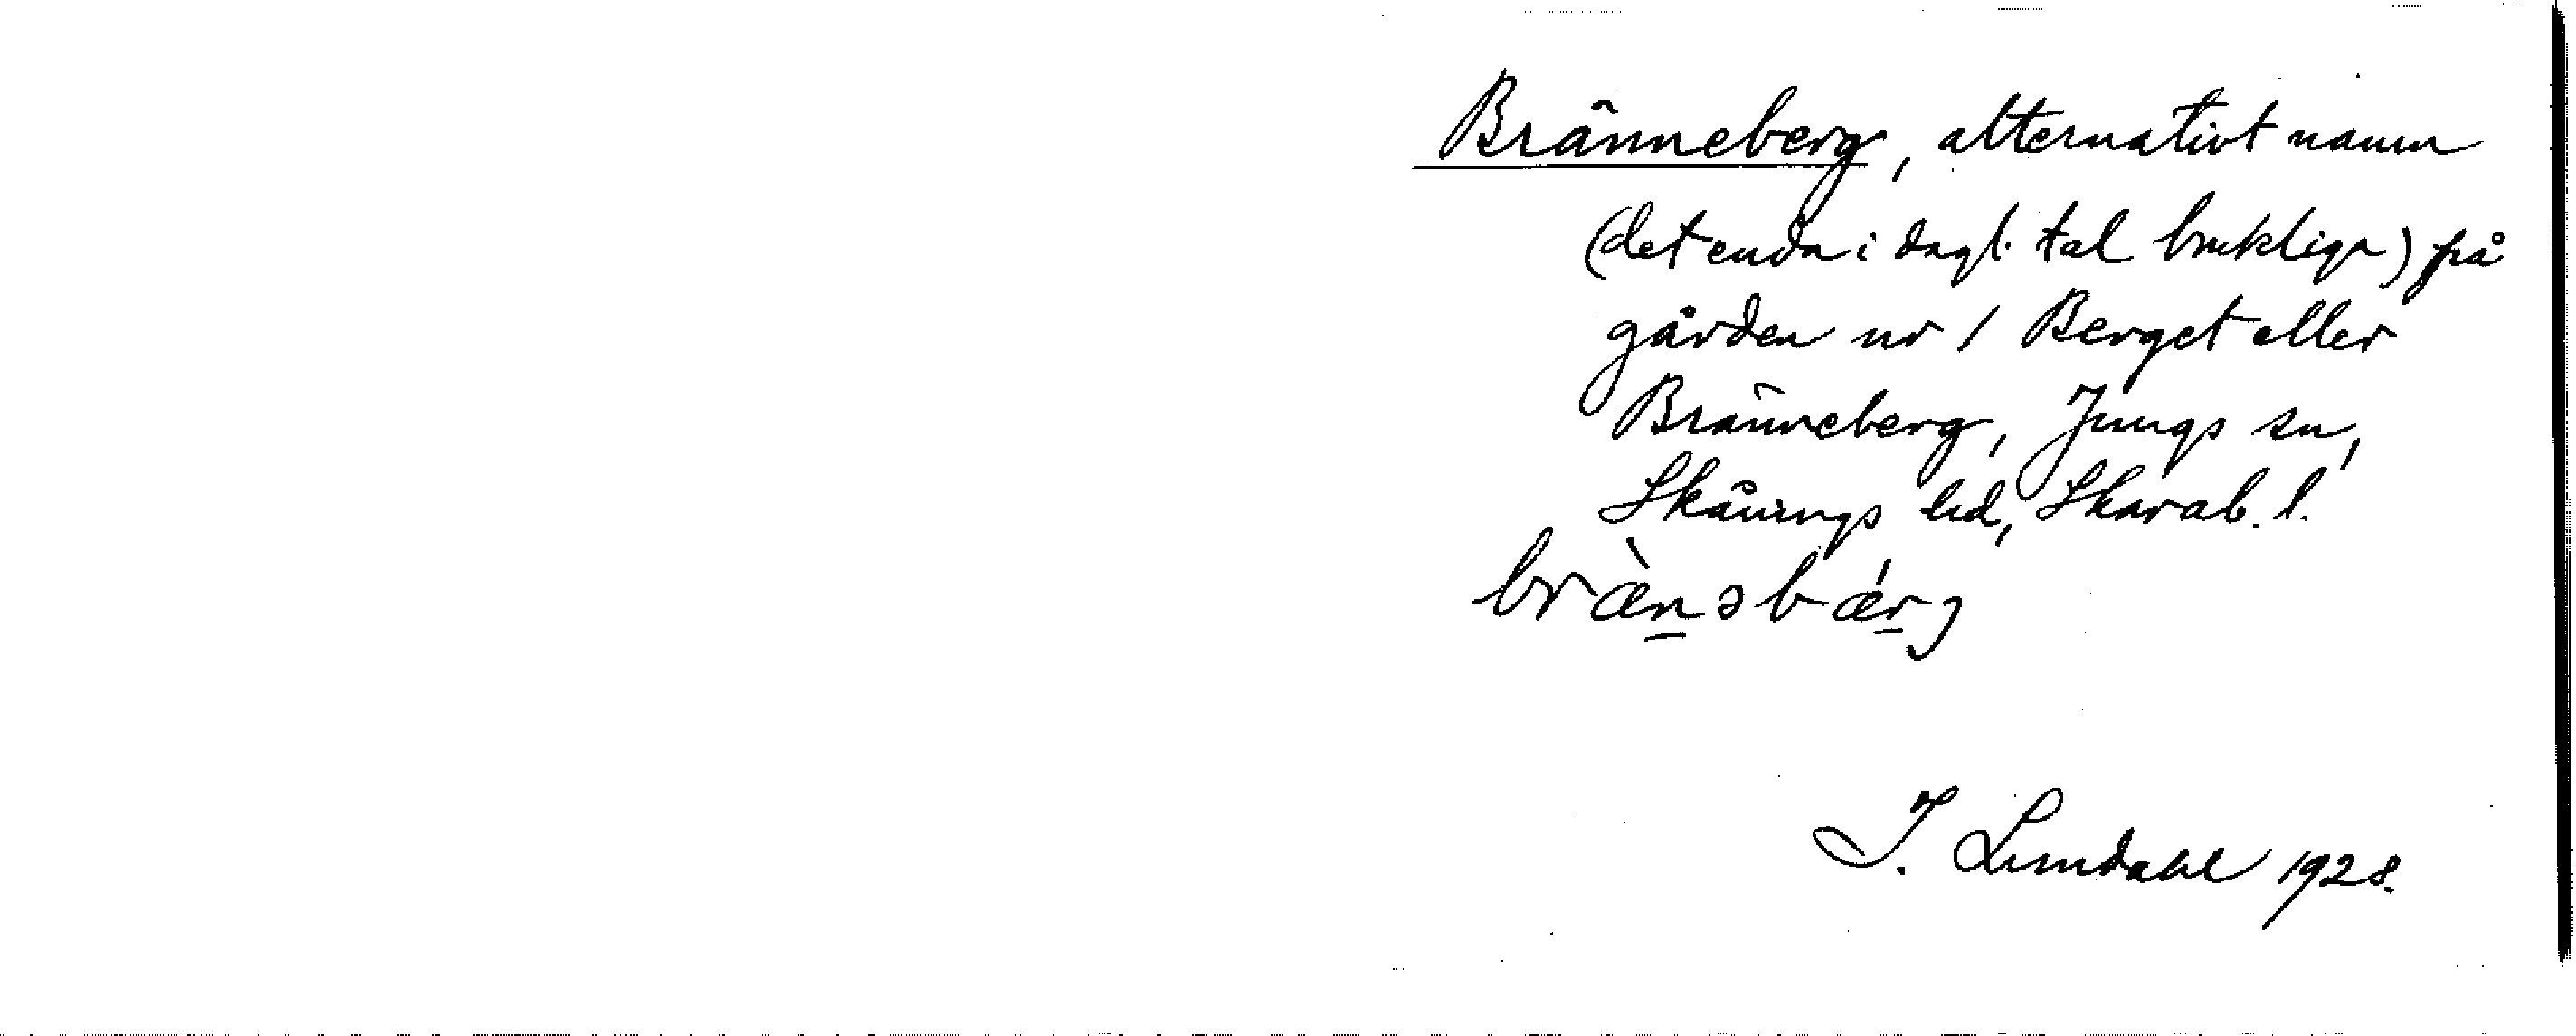 Bränneberg, alternativt namn
(det enda i dagl. tal brukliga) på
gården nr 1 Berget eller
Bränneberg, Jungs sn,
Skånings hd, Skarab. l.
bræ̀nəbǽrj
J. Lundahl 1928.